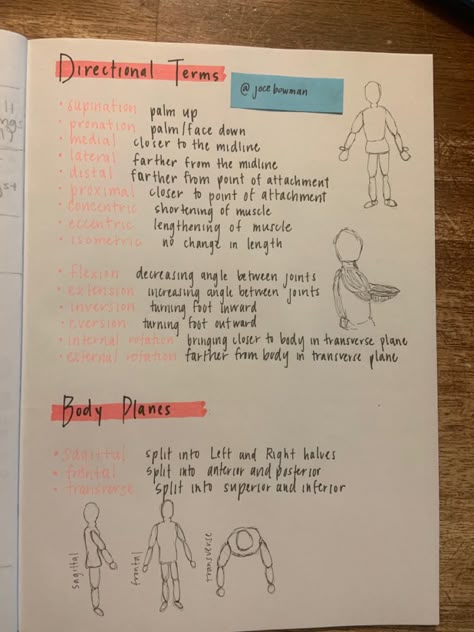 Directional Terms
@jocebowman
• supination palm up
• pronation palm/face down
• medial closer to the midline
• lateral farther from the midline
• distal farther from point of attachment
• proximal closer to point of attachment
• concentric shortening of muscle
• eccentric lengthening of muscle
• isometric no change in length
• flexion decreasing angle between joints
• extension increasing angle between joints
• inversion turning foot inward
• eversion turning foot outward
• internal rotation bringing closer to body in transverse plane
• external rotation farther from body in transverse plane
Body Planes
• sagittal split into Left and Right halves
• frontal split into anterior and posterior
• transverse split into superior and inferior
sagittal
frontal
transverse